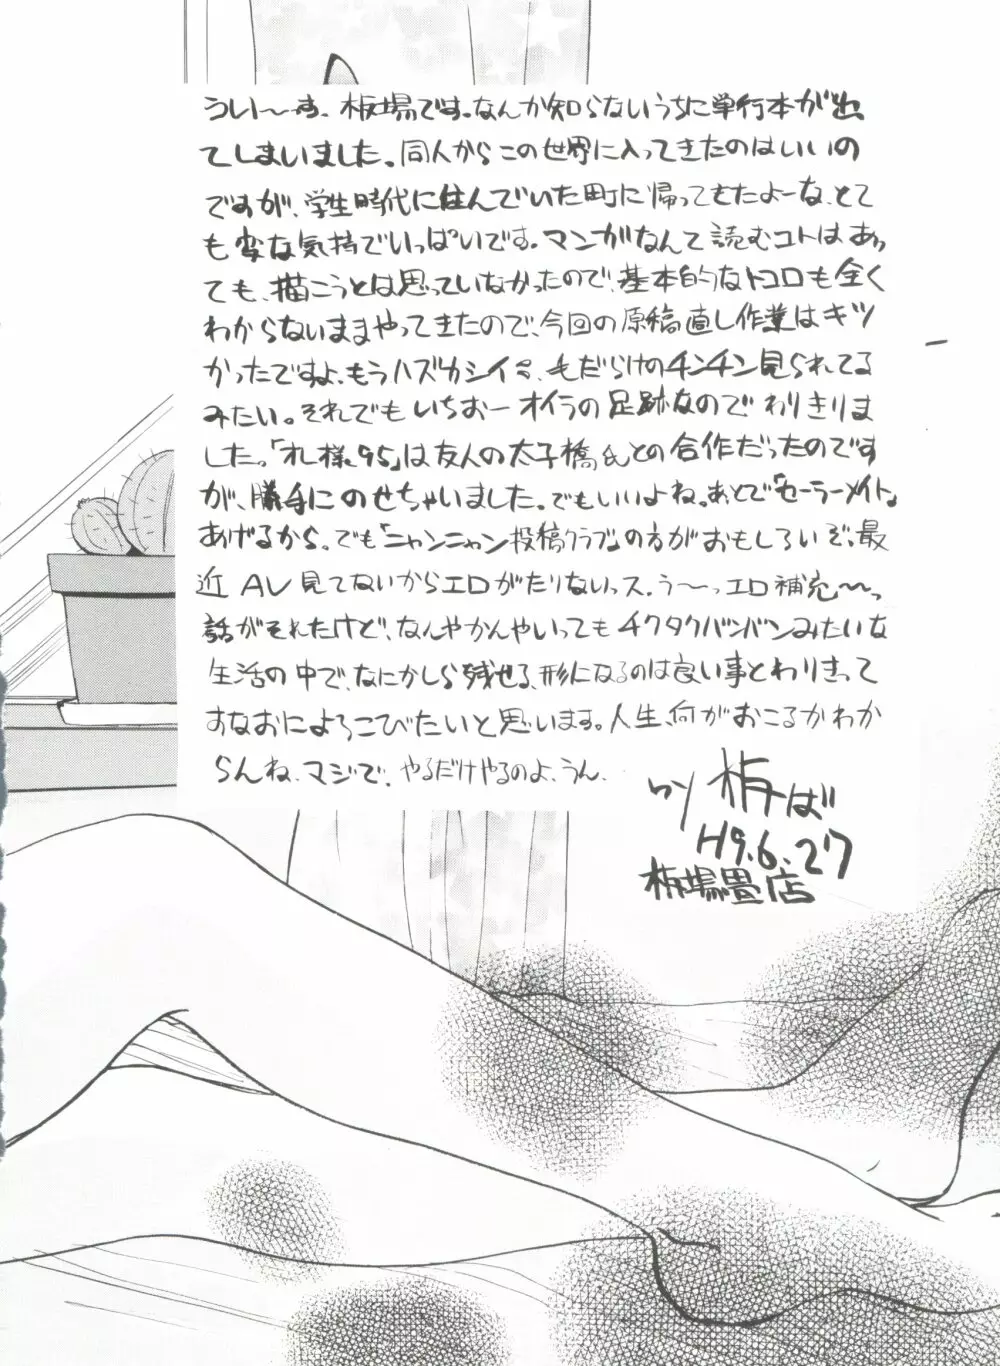 ういーす、板場です。なんか知らないうちに単行本が出
てしまいました。同人からこの世界に入ってきたのはいいの
ですが、学生時代に住んでいた町に帰ってもたよーな、とて
も変な気持でいっぱいです。マンガなんて読むコトはあっ
ても、描こうとは思っていなかったので、基本的なトコロも全く
わからないままやってきたので、今回の原稿直し作業はキツ
かったですよ、もうハズカシイミ、毛だらけのチンチン見られてる
みたい。それでもいちおーオイラの足跡なのでわりきりま
した。「オレ様95」は友人の太子橋氏との合作だったのです
が、勝手にのせちゃいました。でもいいよね。あとで「セーラーメイト」
あげるから。でも「ニャンニャン投稿クラブ」の方がおもしろいぞ。最
近AV見てないからエロがたりないっス。う〜っエロ補充〜っ
話がそれたけど、なんやかんやいってもチクタクバンバンみたいな
生活の中で、なにかしら残せる、形になるのは良い事とわりきって
すなおによろこびたいと思います。人生、何がおこるかわか
らんね、マジで、やるだけやるのよ、うん。
板ば
H9.6.27
板場畳店